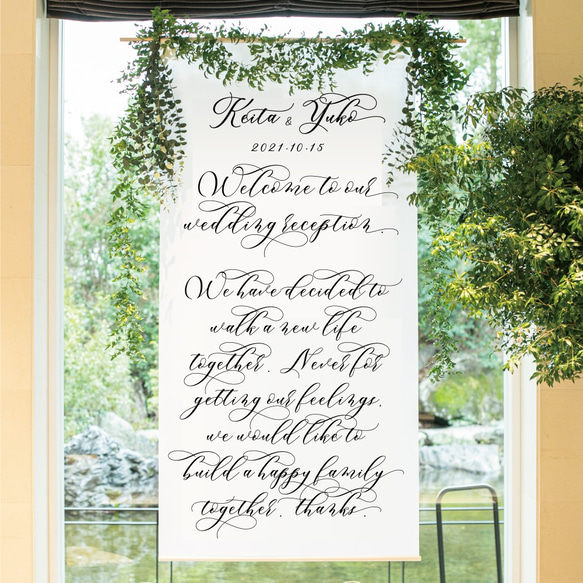 Keita & Yuko
2021.10.15
Welcome to our
wedding reception.
We have decided to
walk a new life
together. Never for
getting our feelings.
we would like to
build a happy family
together. thanks.